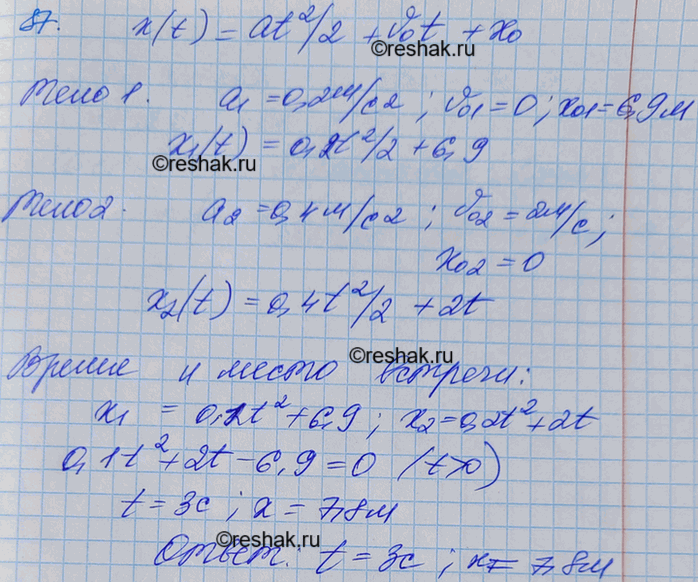 87. x(t) = at²/2 + v₀t + x₀
©reshak.ru
Тело 1. a₁ = 0,2м/с2 ; v₀₁ = 0 ; x₀₁ = 6,9м
x₁(t) = 0,2t²/2 + 6,9
©reshak.ru
Тело 2. a₂ = 0,4м/с2 ; v₀₂ = 2м/с ;
x₀₂ = 0
x₂(t) = 0,4t²/2 + 2t
©reshak.ru
Время и место встречи:
x₁ = 0,1t² + 6,9 ; x₂ = 0,2t² + 2t
0,1t² + 2t - 6,9 = 0 (t>0)
t = 3с ; x = 7,8м
©reshak.ru
Ответ: t = 3с ; x = 7,8м